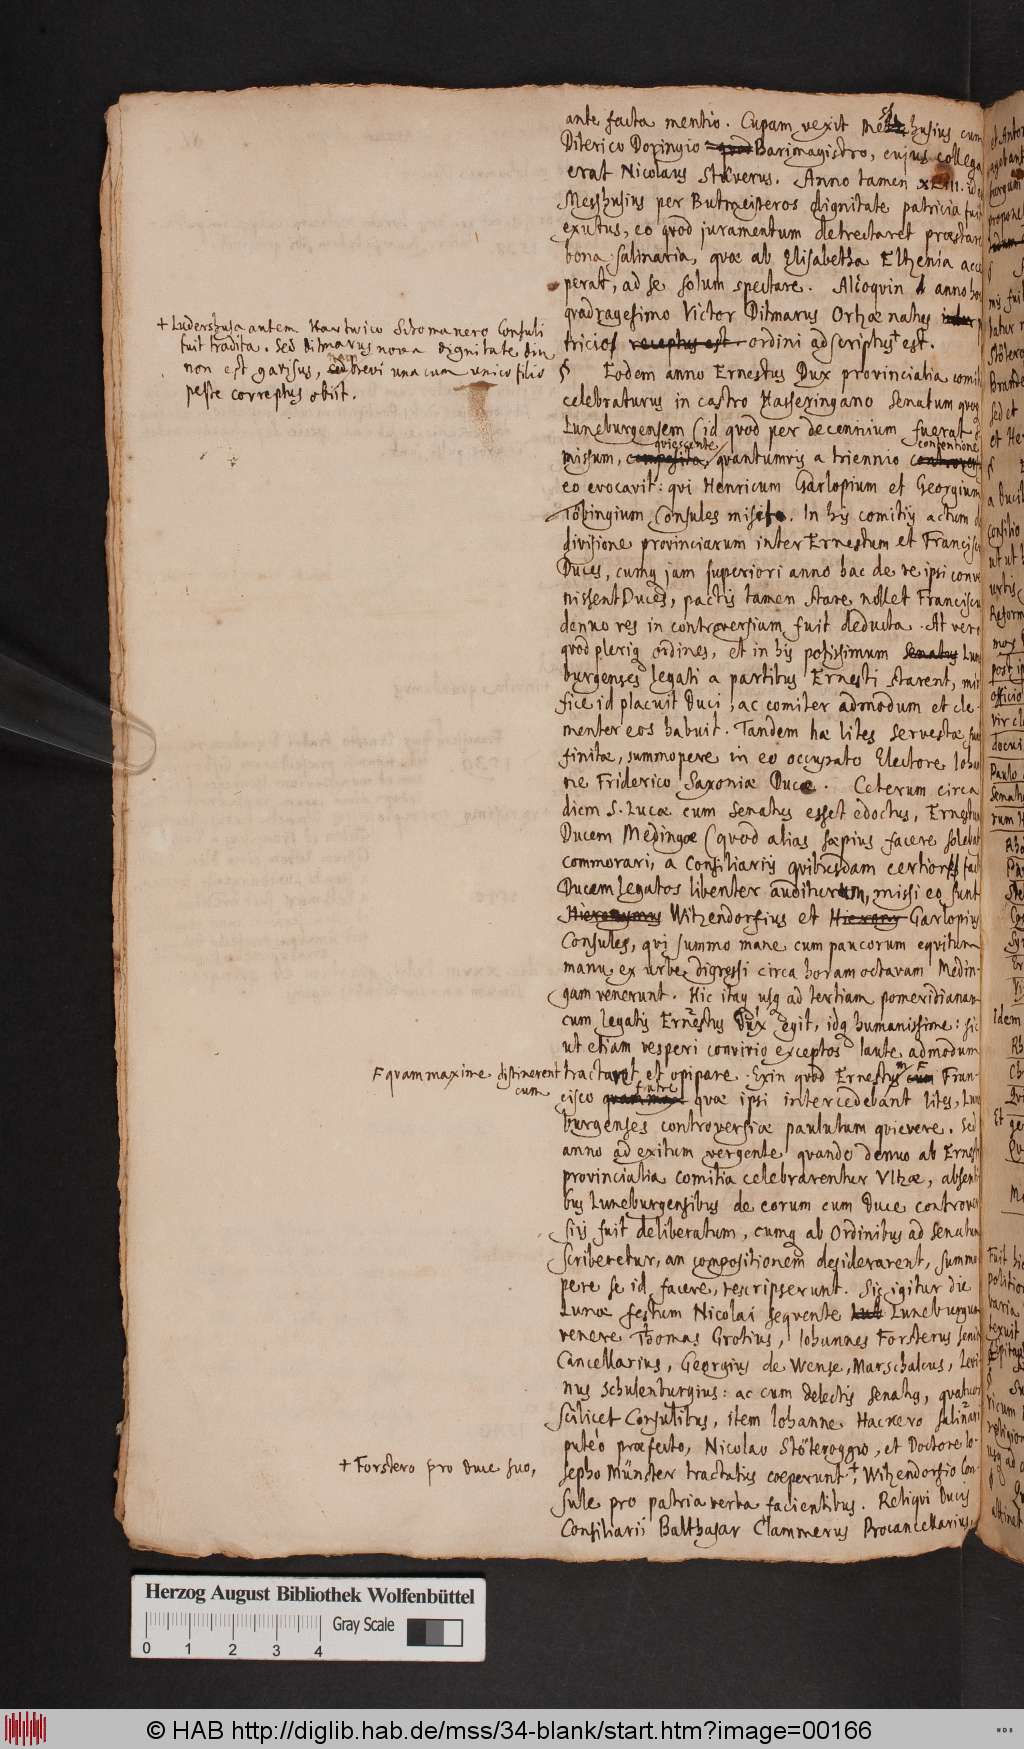 ante facta mentio. Cupam vexit Meschusius cum
Diterico Doringio Barimagistro, cujus collega
erat Nicolaus Stöverus. Anno tamen XLIII.
Meschusius per Butmeisteros dignitate patricia fuit
exutus, eo quod juramentum detrectaret præstare
bona salinaria, quæ ab Elisabetha Eltzenia acce
perat, ad se solum spectare. Alioquin anno hoc
quadragesimo Victor Ditmarus Orthæ natus inter p
tricios receptus est ordini adscriptus + est.
+ Ludershusa autem Hartwico Stomanero Consuli
fuit tradita. Sed Ditmarus nova dignitate diu
non est gavisus, sed brevi una cum unico filio
peste correptus obiit.
§ Eodem anno Ernestus Dux provincialia comiti
celebraturus in castro Hasseringano Senatum quoq
Luneburgensem (id quod per decennium fuerat
quiescente contentione
missum, composita, quantumvis a triennio
eo evocavit: qui Henricum Garlopium et Georgium
Töbingium Consules misit. In his comitiis actum d
divisione provinciarum inter Ernestum et Francisc
Duces, cumq jam superiori anno hac de re ipsi conve
nissent Duces, pactis tamen stare nollet Franciscu
denuo res in controversium fuit deducta. At vero
quod pleriq ordines, et in his potissimum Senatus Lune
burgenses legati a partibus Ernesti starent, miri
fice id placuit Duci, ac comiter admodum et cle-
menter eos habuit. Tandem hæ lites Servestæ fue
finitæ, summopere in eo occupato Electore Ioha
ne Friderico Saxoniæ Duce. Ceterum circa
diem S. Lucæ cum Senatus esset edoctus, Ernestum
Ducem Medingæ (quod alias sæpius facere solebat
commorari, a Consiliariis quibusdam certior fac
Ducem legatos libenter auditurum, missi eo sunt
Hieronymus Witzendorfius et Garlopius
Consules, qui summo mane cum paucorum equitum
manu ex urbe digressi circa horam octavam Medin-
gam venerunt. Hic itaq usq ad tertiam pomeridianam
cum legatis Ernestus Dux egit, idq humanissime: sic
ut etiam vesperi convivio exceptos laute admodum
tractavit et opipare. Exin quod Ernestum cum F Fran-
F quam maxime distinerent
cum
fratre
cisco quam max quæ ipsi intercedebant lites, Lune
burgenses controversiæ paulutum quievere. Sed
anno ad exitum vergente quando denuo ab Ernesto
provincialia comitia celebrarentur Vltzæ, absenti
bus Luneburgensibus de eorum cum Duce controver
siis fuit deliberatum, cumq ab Ordinibus ad Senatum
scriberetur, an compositionem desiderarent, summo
pere se id facere, rescripserunt. Sic igitur die
Lunæ festum Nicolai sequente Lub Luneburgum
venere Thomas Grotius, Iohannes Forsterus senior
Cancellarius, Georgius de Wense, Marschalcus, Levi
nus Schulenburgius: ac cum delectis Senatus, quatuor
scilicet Consulibus, item Iohanne Hacnero Salinari
puteo præfecto, Nicolao Stöteroggio, et Doctore Io-
sepho Münster tractatus cœperunt +, Witzendorfio Con-
+ Forstero pro Duce suo,
sule pro patria verba facientibus. Reliqui Ducis
Consiliarii Balthasar Clammerus Procancellarius,
Herzog August Bibliothek Wolfenbüttel
Gray Scale
0 1 2 3 4
© HAB http://diglib.hab.de/mss/34-blank/start.htm?image=00166